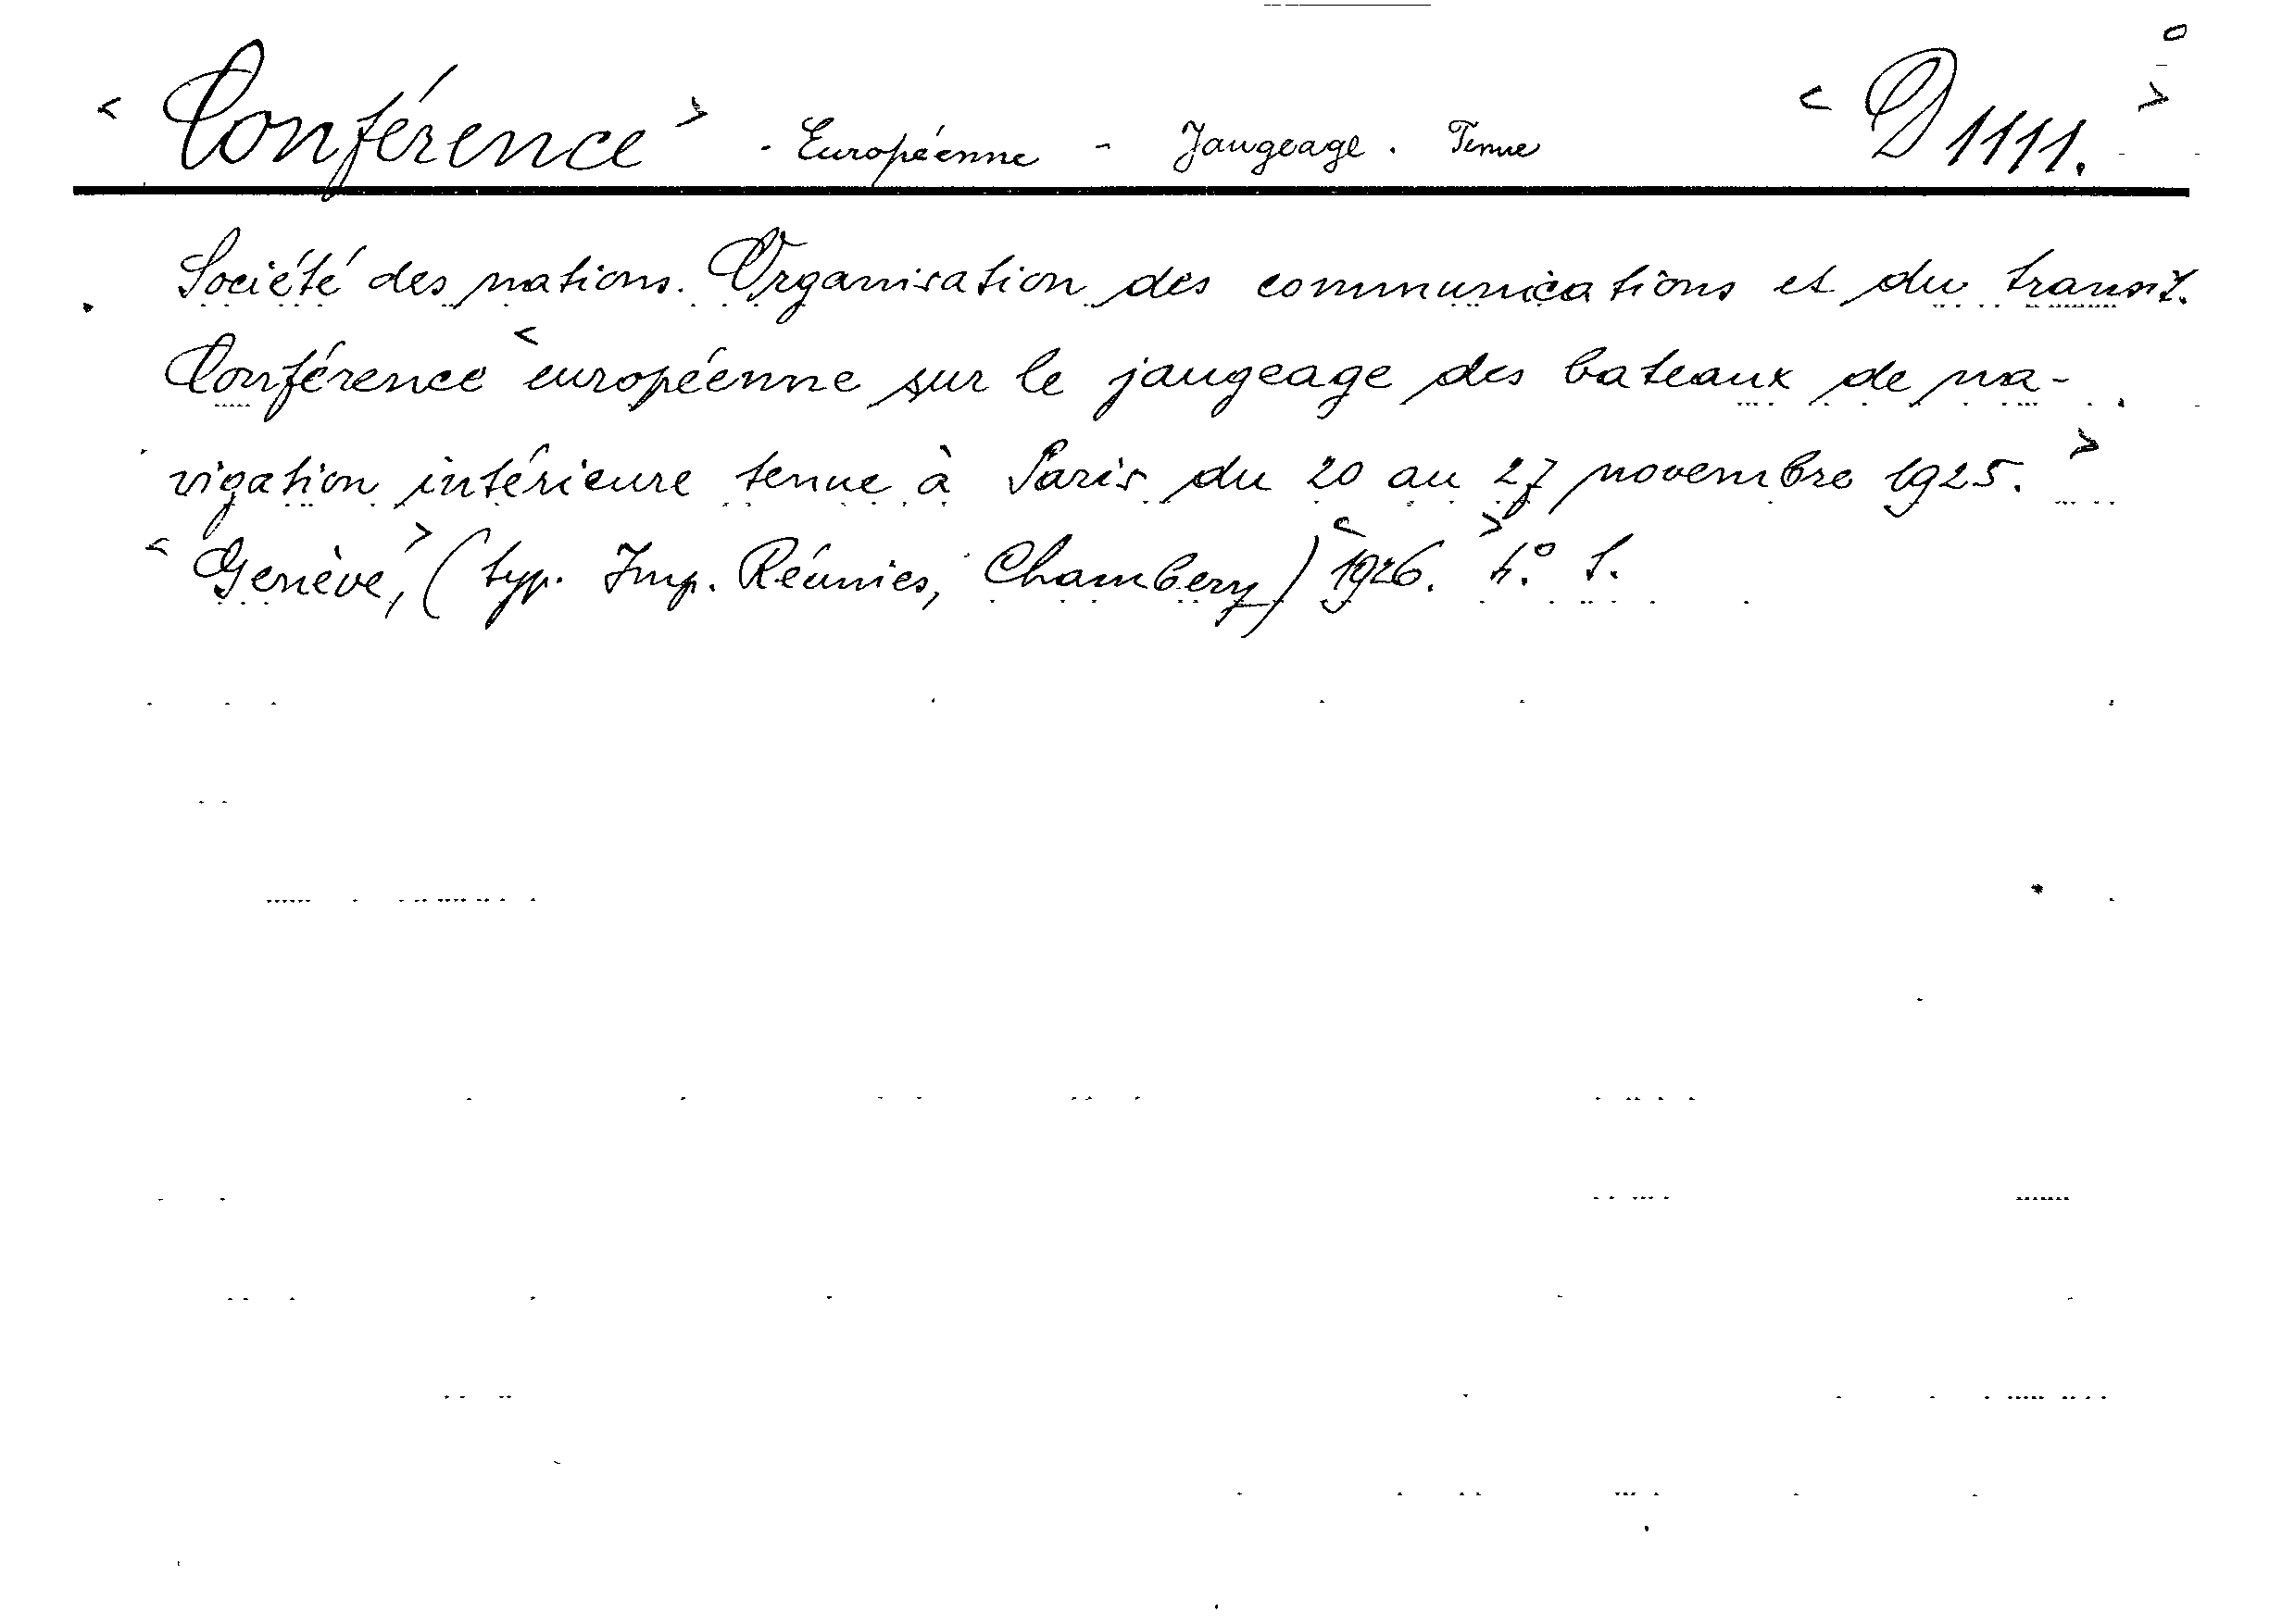 < Conférence > - Européenne - Jaugeage. Tenue < D 1111. >
Société des nations. Organisation des communications et du transit.
Conférence < européenne sur le jaugeage des bateaux de na-
vigation intérieure tenue à Paris du 20 au 27 novembre 1925. >
< Genève, > (typ. Imp. Réunies, Chambery) < 1926. > 4.° S.